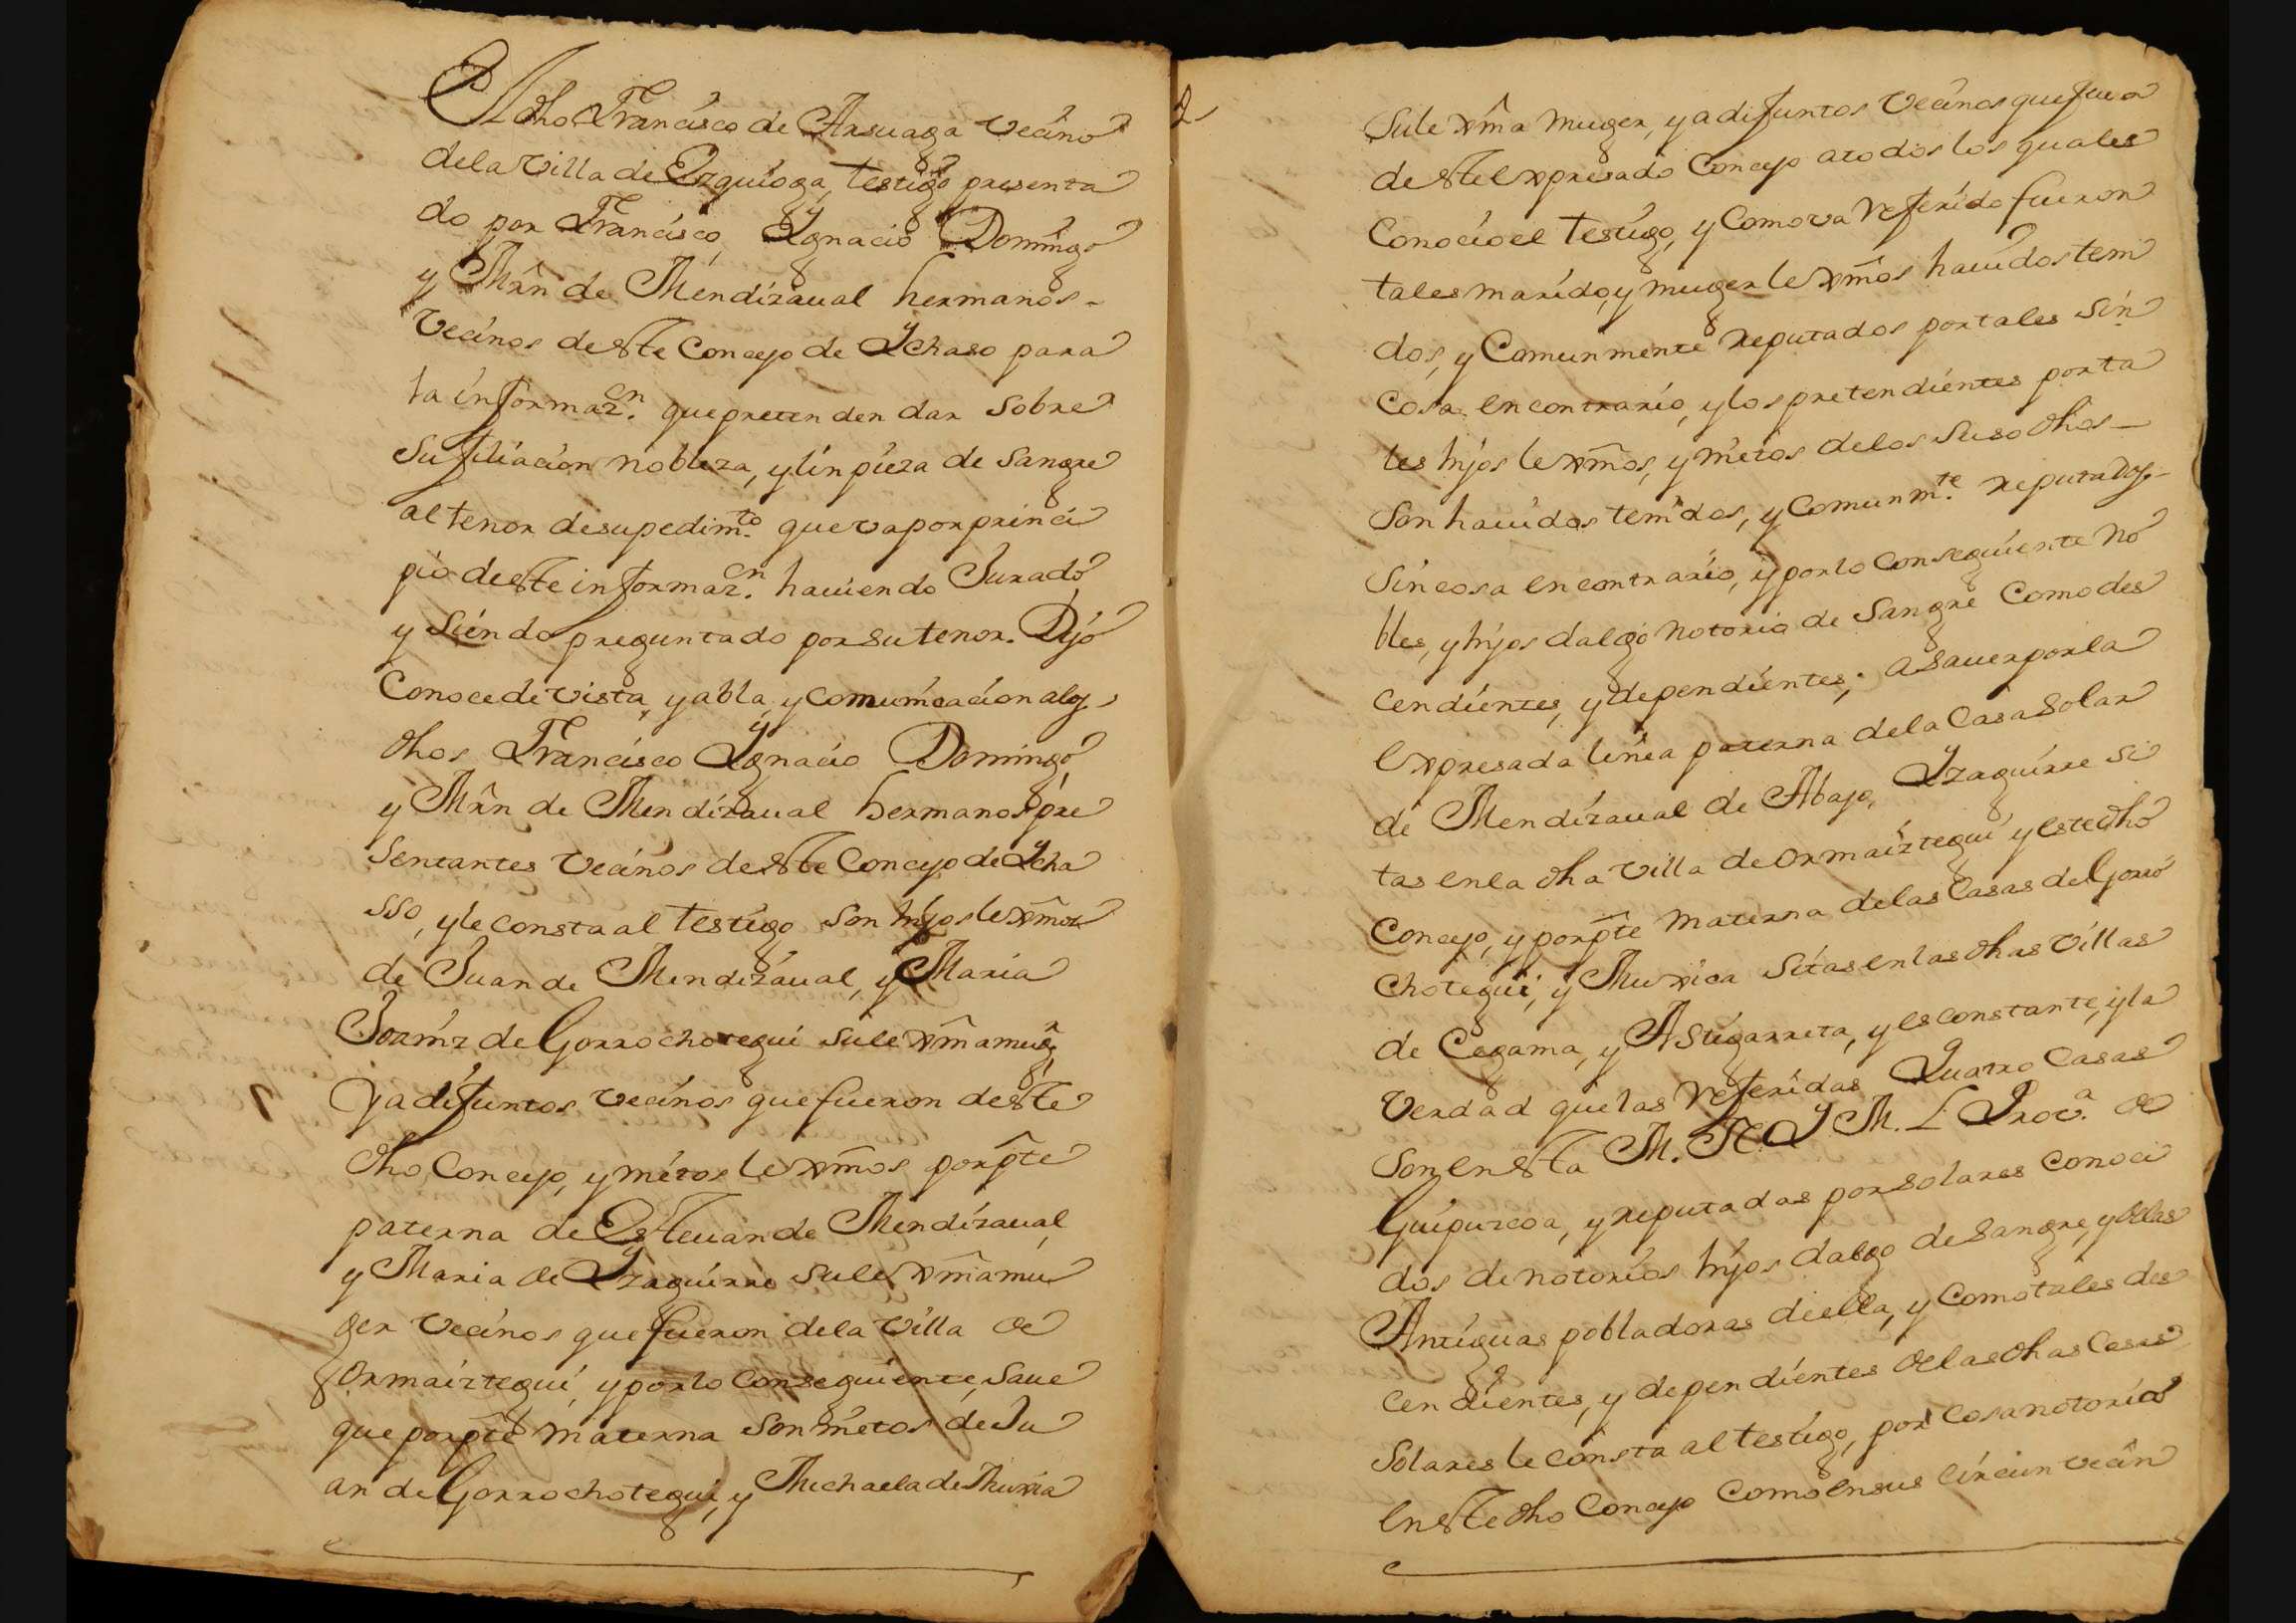 El dho Francisco de Arsuaga vecino
de la villa de Ezquioga, testigo presenta
do por Francisco, Ygnacio Domingo
y Mrn de Mendizaual hermanos -
Vecinos deste Concejo de Ychaso para
la informazn. que pretenden dar sobre
su filiacion nobleza, y linpieza de sangre
al tenor de supedimto. que va por princi
pio deste informazn. hauiendo Jurado,
y siendo preguntado por su tenor. Dijo
Conoce de vista, y abla, y comunicacion a los
dhos Francisco Ygnacio Domingo,
y Mrn de Mendizaual hermanos pre
sentantes Vecinos deste Concejo de Ycha
sso, y le consta al testigo son hijos lexmos
de Juan de Mendizaual, y Maria
de Gorrochotegui su lexma mugr
ya difuntos vecinos que fueron deste
dho Concejo, y nietos lexmos por pte
paterna de Esteuan de Mendizaual,
y Maria de Yzaguirre su lexma mu
ger vecinos que fueron de la villa de
Ormaiztegui, y por lo conseguiente, saue
que por pte materna son nietos de Ju
an de Gorrochotegui, y Michaela de Muxica
2
su lexma muger, ya difuntos Vecinos que fueron
deste expresado Concejo a todos los quales
Conocio el testigo, y como va referido fueron
tales marido, y muger lexmos hauidos teni
dos, y comunmente reputados por tales sin
cosa en contrario, y los pretendientes por ta
les hijos lexmos, y nietos de los suso dhos -
son hauidos tenidos, y comunmte. reputados -
sin cosa en contrario, y por lo conseguiente no
bles, y hijos dalgo notorio de sangre como des
cendientes, y dependientes; a sauer por la
expresada linea paterna de la Casa solar
de Mendizaual de Abajo, Yzaguirre si
tas en la dha villa de Ormaiztegui y este dho
Concejo, y por pte materna de las Casas de Gorro
chotegui, y Muxica sitas en las dhas villas
de Cegama, y Astigarreta, y es constante, y la
verdad que las referidas Quatro Casas
son en esta M. N. Y M. L Prova. de
Guipuzcoa, y reputadas por solares conoci
dos de notorios hijos dalgo de sangre, y de las
Antiguas pobladoras de ella, y como tales des
cendientes, y dependientes de las dhas Casas
Solares le consta al testigo, por cosa notoria
en este dho Concejo como en sus circunvecin